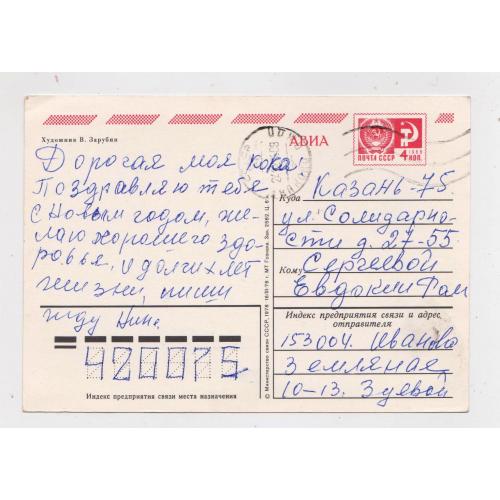 Художник В. Зарубин
АВИА
ПОЧТА СССР
4 КОП.
Дорогая моя кока!
Поздравляю тебя
с Новым годом, же-
лаю хорошего здо-
ровья, и долгих лет
жизни, пиши
жду Нина.
Куда Казань-75
ул. Солидарно-
сти д. 27-55
Кому Сергеевой
Евдокии Пам
Индекс предприятия связи и адрес
отправителя
153004. Иванова
Земляная
10-13. Зуевой
420075
Индекс предприятия связи места назначения
© Министерство связи СССР, 1978